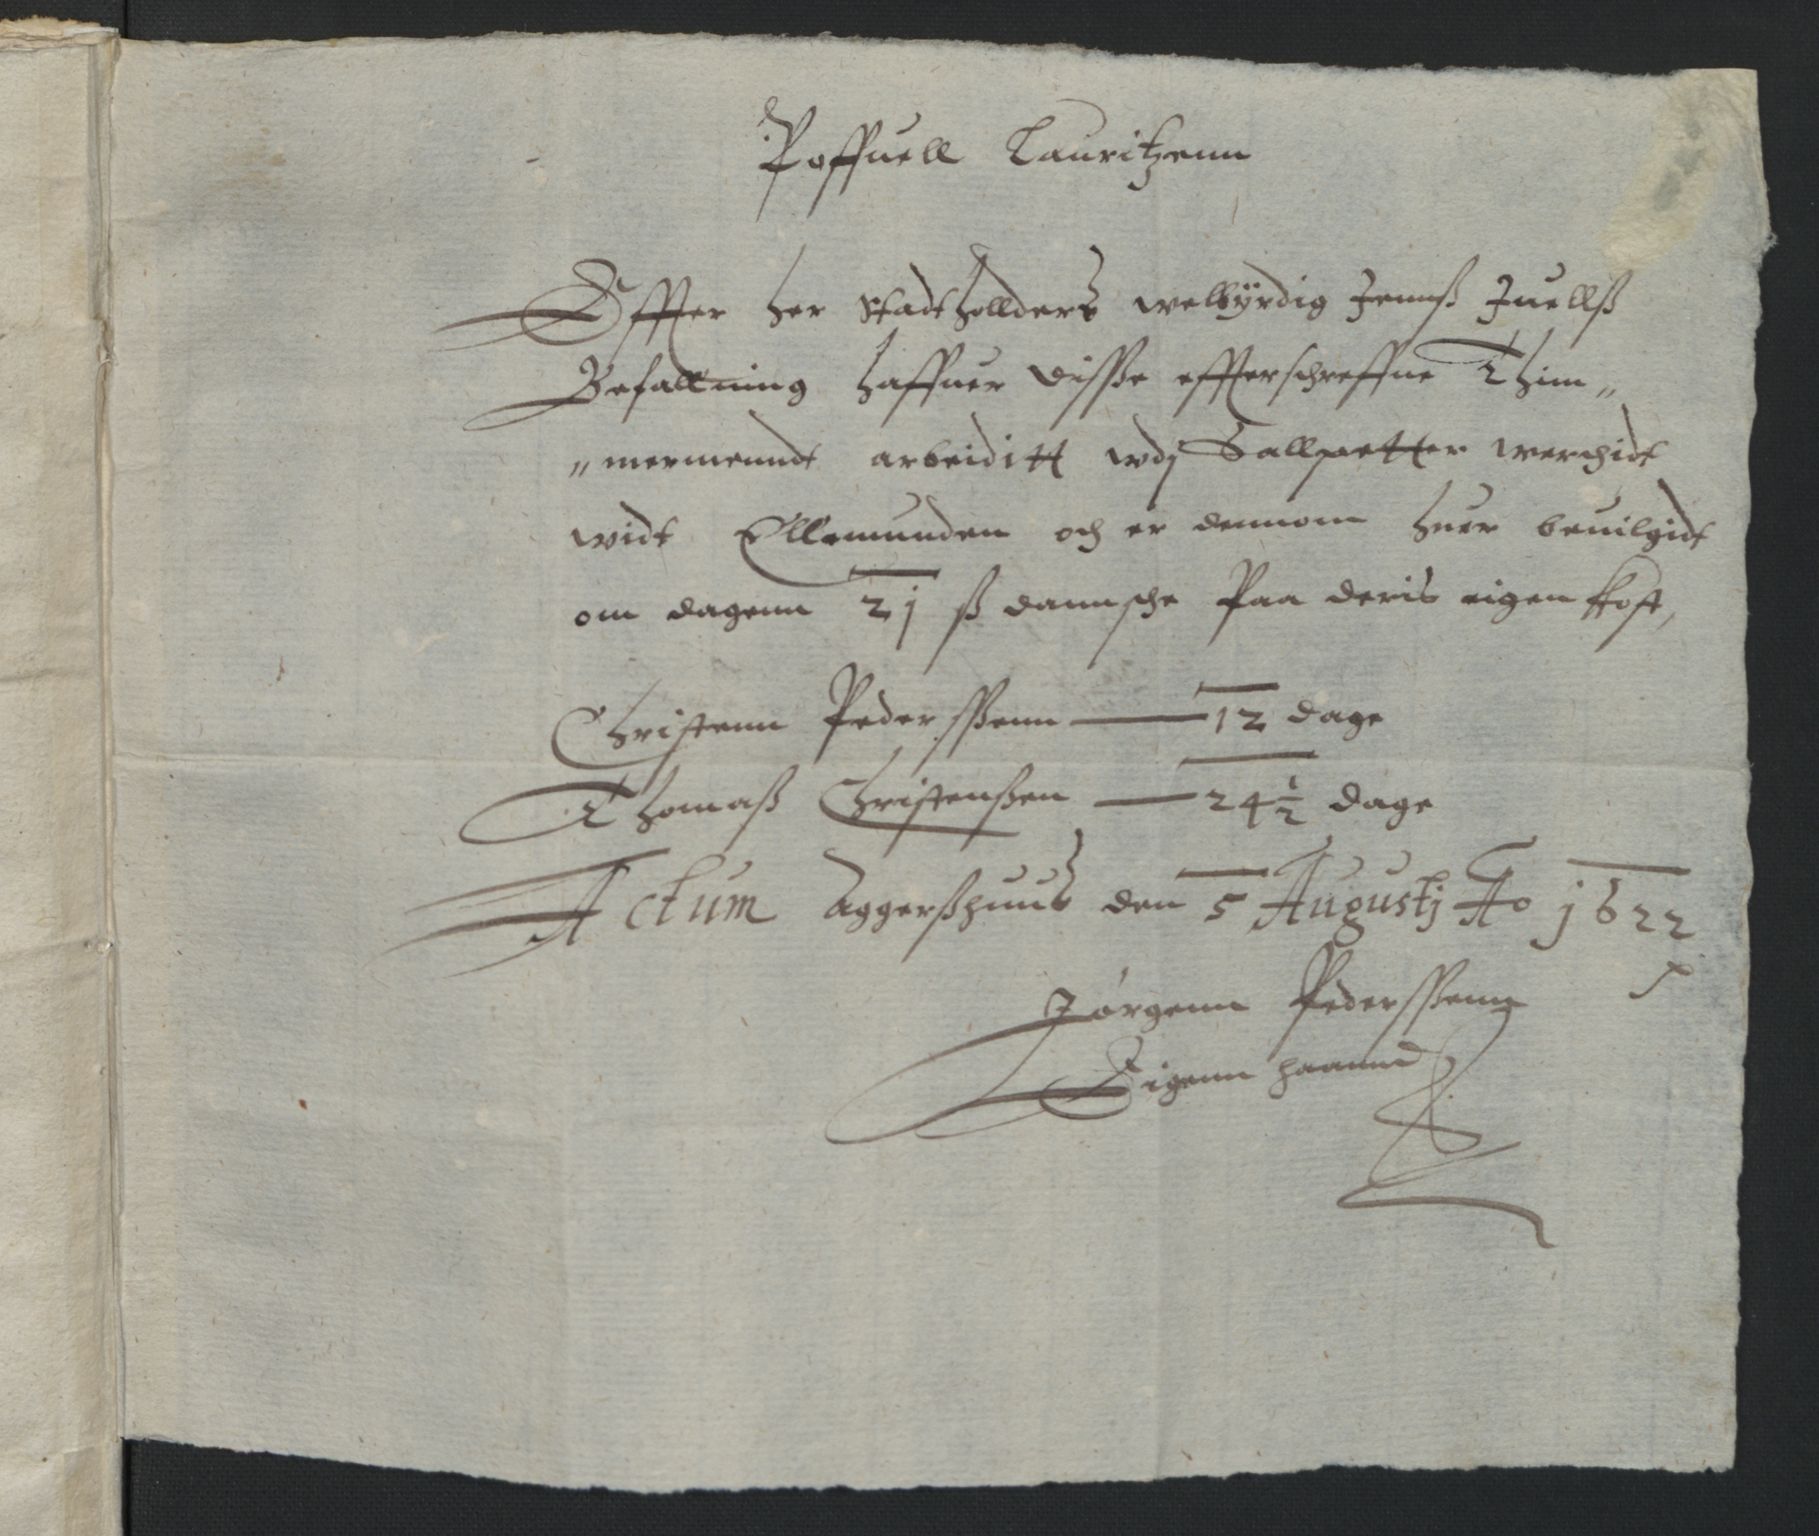 Poffuell Lauritzenn
Effter Her Stadthollders welbÿrdig Jennß Juellß
Befallning haffuer disße effterschreffne Thim„
„mermenndt arbeiditt wdj Sallpetter werchidt
widt Ellemunden och er dennom huer beuilgidt
om dagenn 21 ß dannsche Paa deris eigen kost,
Christenn Pedersßenn — 12 dage
Thomaß Christenßen — 24½ dage
Actum Aggerßhuus den 5 Augustj Ao 1622
Jørgenn Pedersßenn
Eigenn haannd